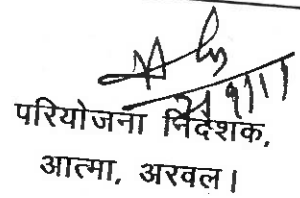 परियोजना निदेशक,
आत्मा, अरवल।